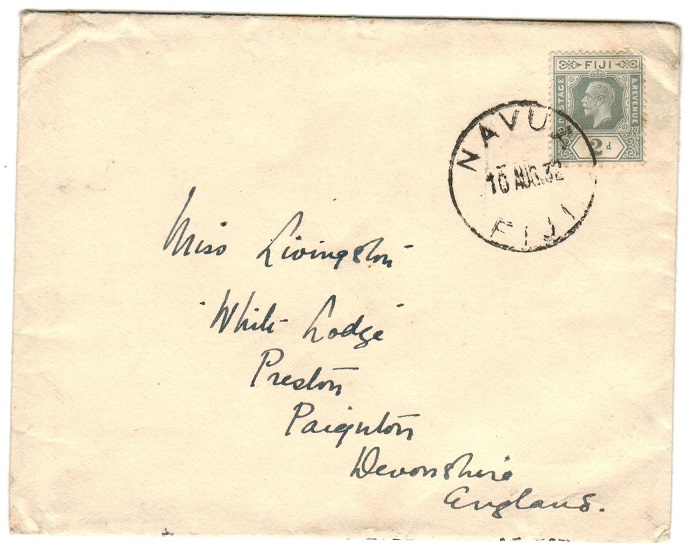 FIJI
POSTAGE & REVENUE
2d
NAVUA
16 AUG.32
FIJI
Miss Livingston
"White Lodge"
Preston
Paignton
Devonshire
England.